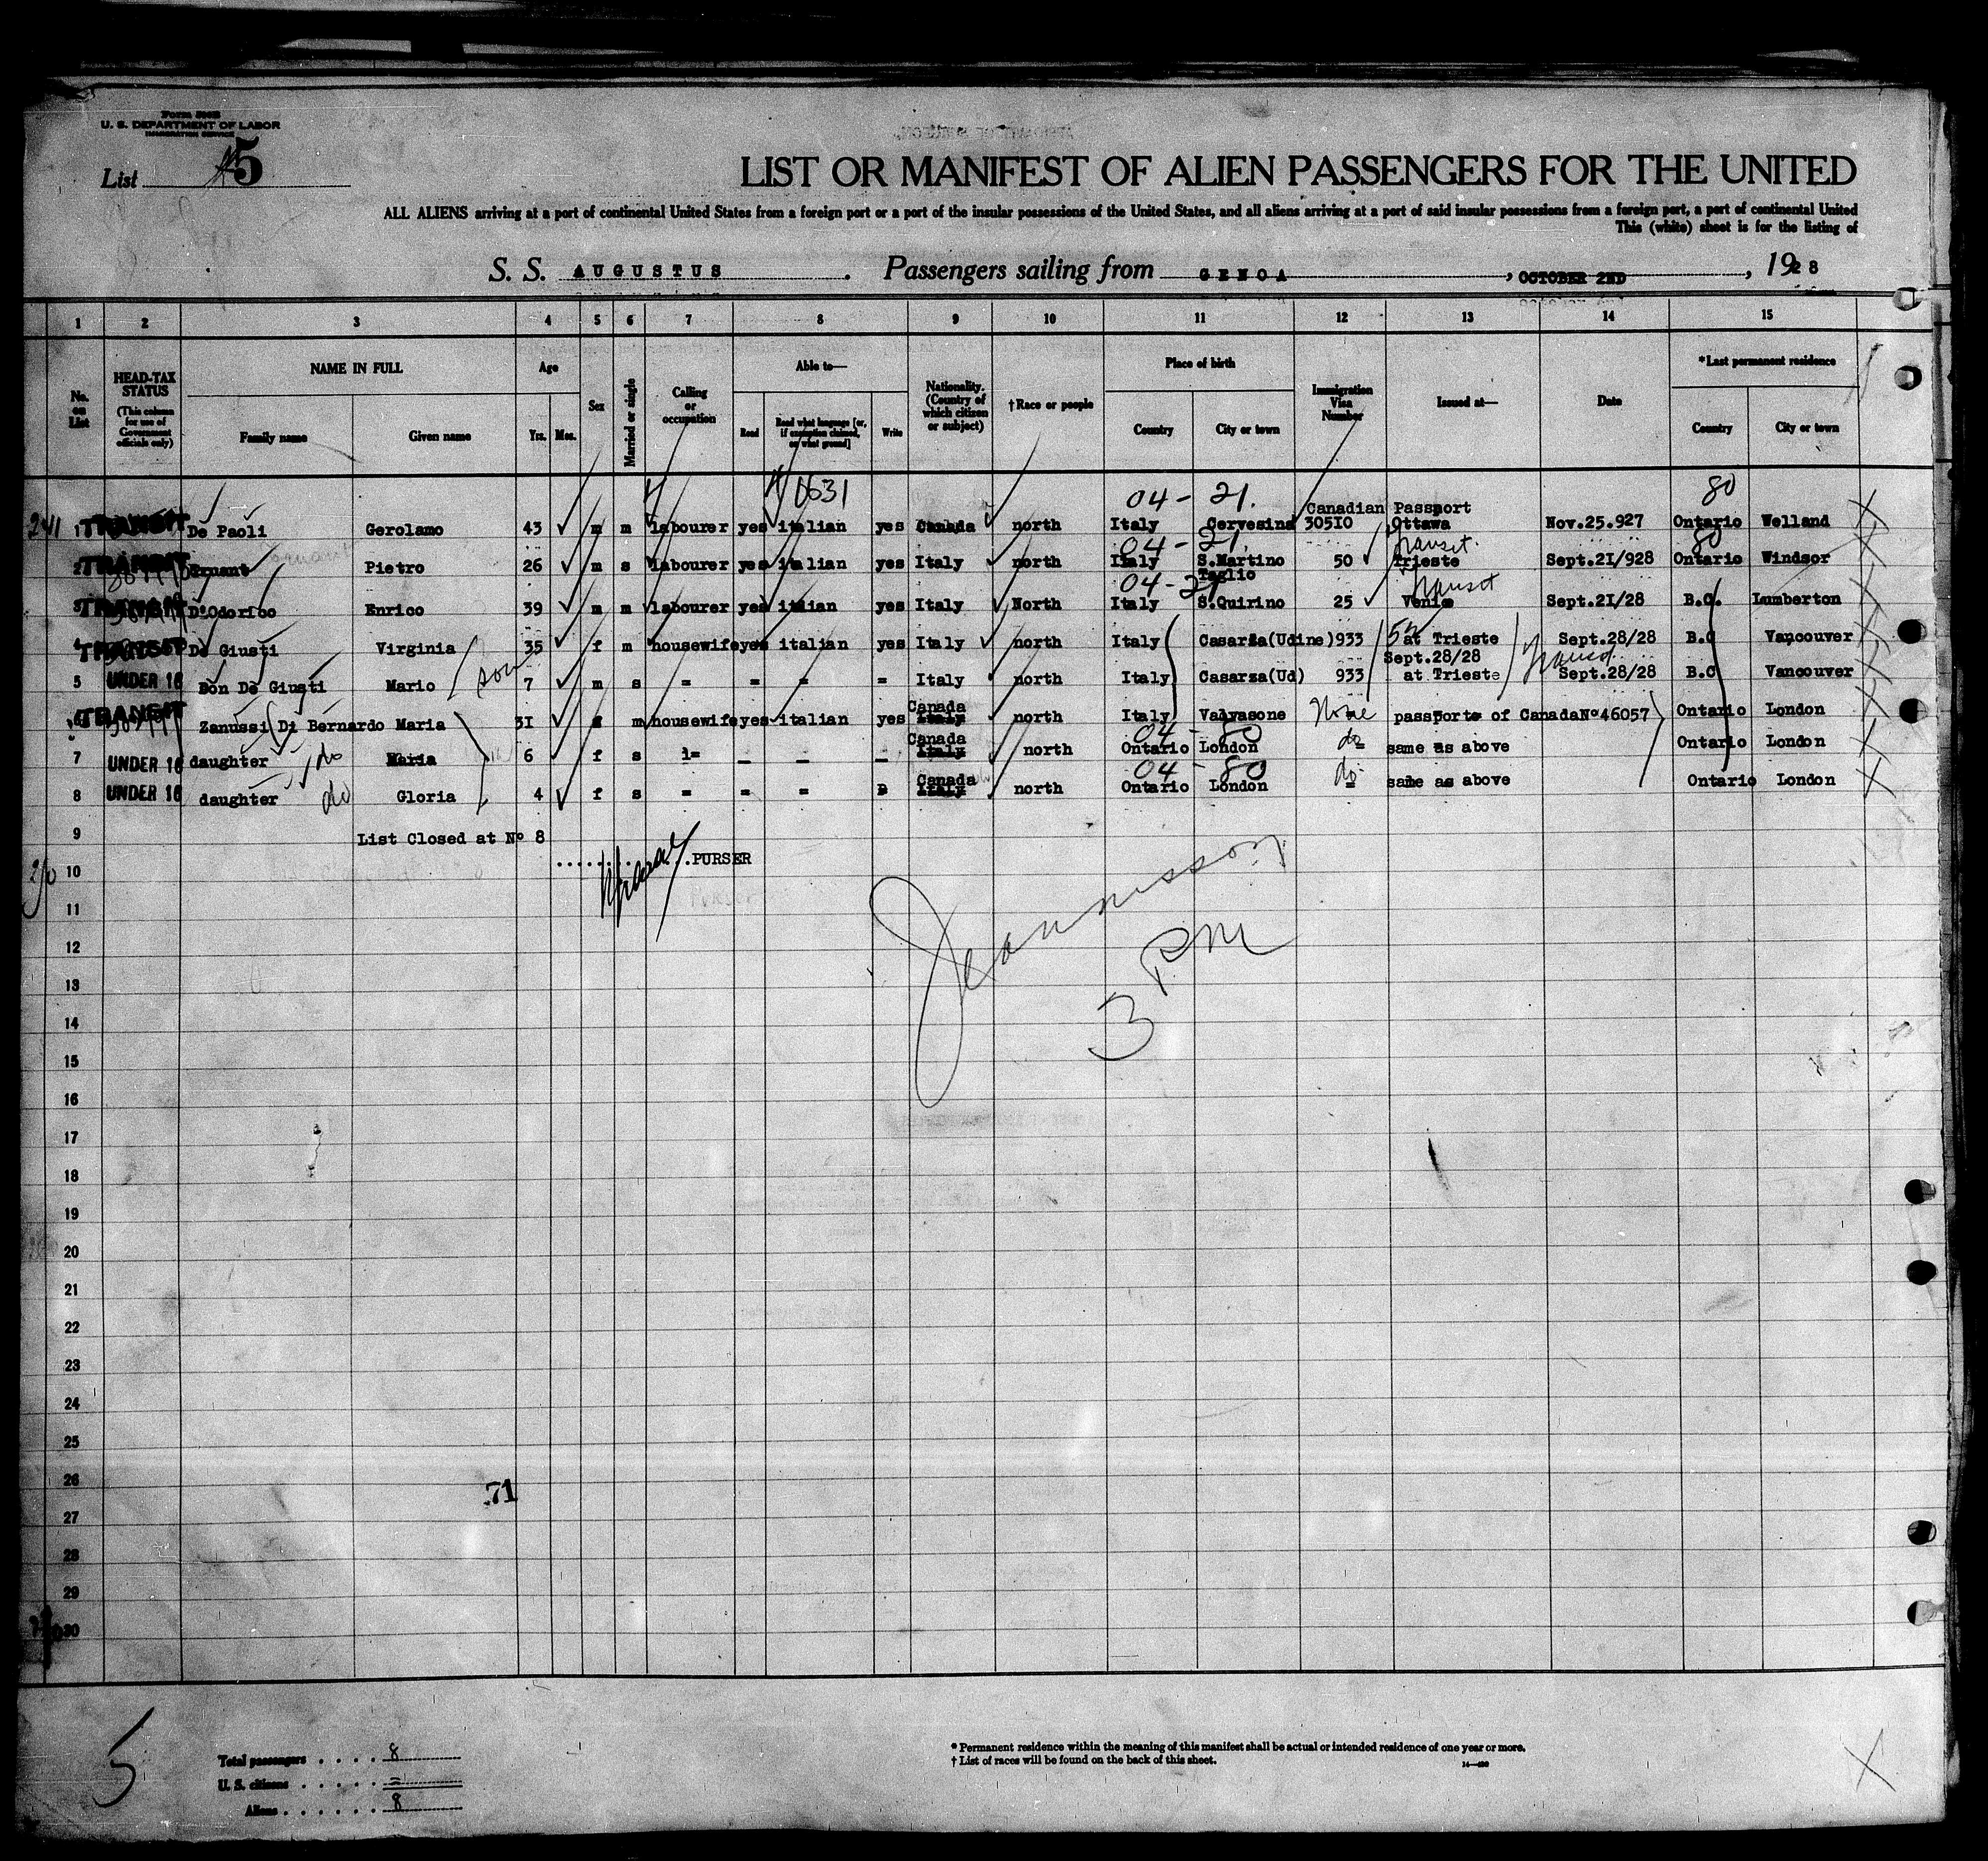 U. S. DEPARTMENT OF LABOR
IMMIGRATION SERVICE
List 5
LIST OR MANIFEST OF ALIEN PASSENGERS FOR THE UNITED
ALL ALIENS arriving at a port of continental United States from a foreign port or a port of the insular possessions of the United States, and all aliens arriving at a port of said insular possessions from a foreign port, a port of continental United
This (white) sheet is for the listing of
S. S. AUGUSTUS. Passengers sailing from GENOA, OCTOBER 2ND, 1928
1 2 3 4 5 6 7 8 9 10 11 12 13 14 15
No. on List
HEAD-TAX STATUS (This column for use of Government officials only)
NAME IN FULL Family name Given name
Age Yrs. Mos.
Sex
Married or single
Calling or occupation
Able to— Read Read what language [or, if exemption claimed, on what ground] Write
Nationality. (Country of which citizen or subject)
†Race or people
Place of birth Country City or town
Immigration Visa Number
Issued at—
Date
*Last permanent residence Country City or town
0631 04 - 21. 80
Canadian Passport
241 1 TRANSIT De Paoli Gerolamo 43 m m labourer yes italian yes Canada north Italy Cervesina 30510 Ottawa Nov.25.927 Ontario Welland
04 - 21 transit. 80
2 TRANSIT Pietro 26 m s labourer yes italian yes Italy north Italy S.Martino Taglio 50 Trieste Sept.21/928 Ontario Windsor
04 - 21 transit
3 TRANSIT D'Odorico Enrico 39 m m labourer yes italian yes Italy North Italy S.Quirino 25 Venice Sept.21/28 B.C. Lumberton
4 TRANSIT De Giusti Virginia 35 f m housewife yes italian yes Italy north Italy Casarsa(Udine) 933 at Trieste Sept.28/28 B.C Vancouver
son Sept.28/28 transit
5 UNDER 16 Bon De Giusti Mario 7 m s = = = = Italy north Italy Casarsa(Ud) 933 at Trieste Sept.28/28 B.C Vancouver
Canada
6 TRANSIT Zanussi Di Bernardo Maria 31 f m housewife yes italian yes Italy north Italy Valvasone None passports of Canada Nº46057 Ontario London
Canada 04 - 80
7 UNDER 16 daughter do Maria 6 f s = _ _ _ Italy north Ontario London do same as above Ontario London
Canada 04 - 80
8 UNDER 16 daughter do Gloria 4 f s = = = Italy north Ontario London do same as above Ontario London
9 List Closed at Nº 8
10 PURSER
11
12
3 PM
13
14
15
16
17
18
19
20
21
22
23
24
25
26
71
27
28
29
30
5
Total passengers . . . . 8
U. S. citizens . . . . . =
Aliens . . . . . . 8
* Permanent residence within the meaning of this manifest shall be actual or intended residence of one year or more.
† List of races will be found on the back of this sheet.
X